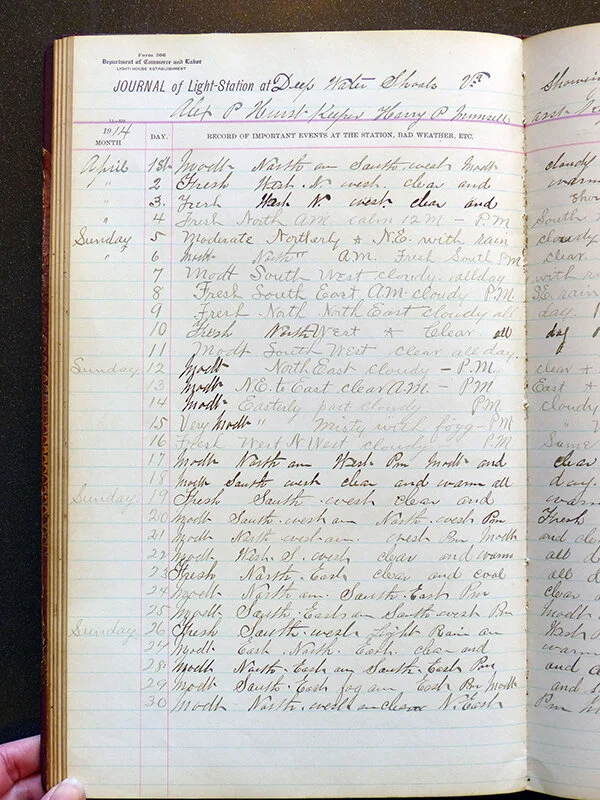 Form 306
Department of Commerce and Labor
LIGHT-HOUSE ESTABLISHMENT
JOURNAL of Light-Station at Deep Water Shoals Va
Alex P Hurst Keeper Harry P
1914
MONTH DAY. RECORD OF IMPORTANT EVENTS AT THE STATION, BAD WEATHER, ETC.
April 1st Modt North am South west Modt cloudy
" 2 Fresh West. N west. clear and warm
" 3. Fresh West N west clear and
" 4 Fresh North A.M. calm 12 M - P.M South
Sunday 5 Moderate Northerly & N.E. with rain cloudy
" 6 Modt North" A.M. Fresh South P.M clear
7 Modt South West cloudy. all day with
8 Fresh South East A.M cloudy P.M. S.E. rain
9 Fresh North North East cloudy all day.
10 Fresh North West & Clear all day
11 Modt South West clear all day.
Sunday 12 Modt North East cloudy - P.M. clear &
13 Modt N.E. to East clear A.M - PM East &
14 Modt Easterly part cloudy PM cloudy
15 Very Modt " Misty with fogg - PM "
16 Fresh West N West cloudy P.M Same
17 Modt North am West Pm Modt and clear
18 Modt South west clear and warm all day.
Sunday 19 Fresh South. west clear and warm
20 Modt South. west am North. west Pm Fresh
21 Modt North west am. west Pm Modt and
22 Modt West. S. west clear and warm all
23 Fresh North. East clear and cool all
24 Modt North am. South. East Pm clear
25 Modt South. East am South. west Pm Modt
Sunday 26 Fresh South. west Light Rain am West
27 Modt East. North. East. clear and warm
28 Modt North. East am South. East Pm and
29 Modt South. East fog am East Pm Modt and
30 Modt North. west am clear N. East Pm